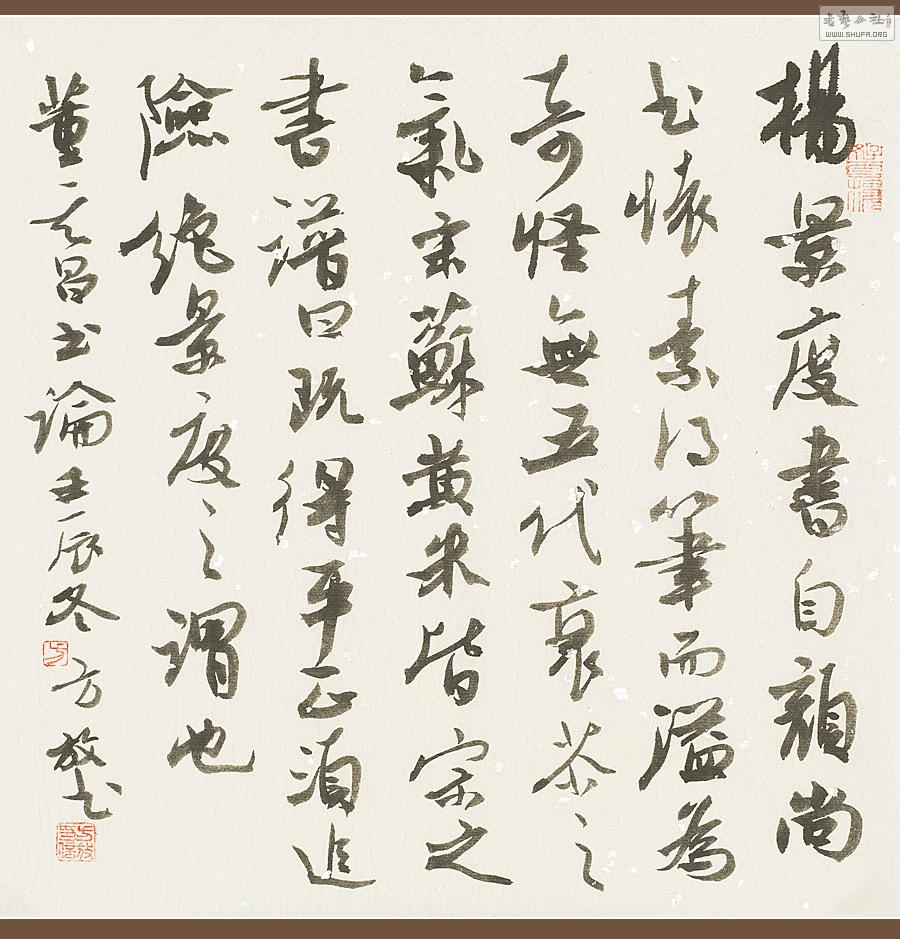 楊景度書自顏尚
书懷素得筆而溢為
奇怪無五代衰苶之
氣宋蘇黃米皆宗之
書譜曰既得平正須追
險絶景度之謂也
董其昌书論壬辰冬方放书
WWW.SHUFA.ORG